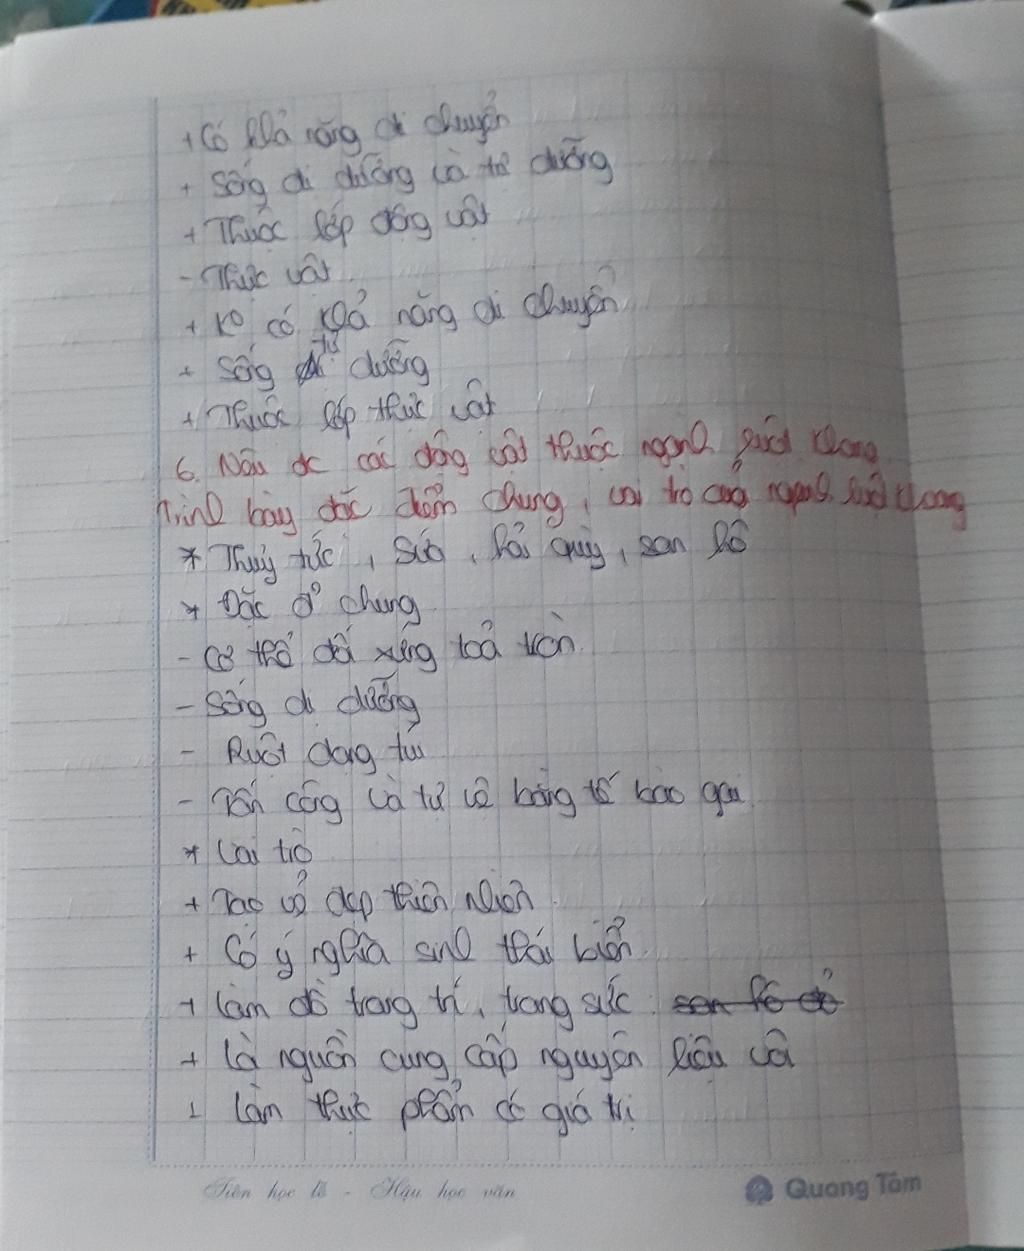 + Có khả năng di chuyển
+ Sống dị dưỡng và tự dưỡng
+ Thuộc lớp động vật
- Thực vật
+ Ko có khả năng di chuyển
+ Sống tự dưỡng
+ Thuộc lớp thực vật
6. Nêu đc các động vật thuộc ngành ruột khoang
Trình bày đặc điểm chung, vai trò của ngành ruột khoang
* Thuỷ tức, Sứa, hải quỳ, san hô
* Đặc đ² chung
- Cơ thể đối xứng toả tròn
- Sống dị dưỡng
- Ruột dạng túi
- Tấn công và tự vệ bằng tế bào gai
* Vai trò
+ Tạo vẻ đẹp thiên nhiên
+ Có ý nghĩa sinh thái biển
+ Làm đồ trang trí, trang sức: san hô đỏ
+ Là nguồn cung cấp nguyên liệu vôi
+ Làm thực phẩm có giá trị
Tiên học lễ - Hậu học văn
Quang Tâm